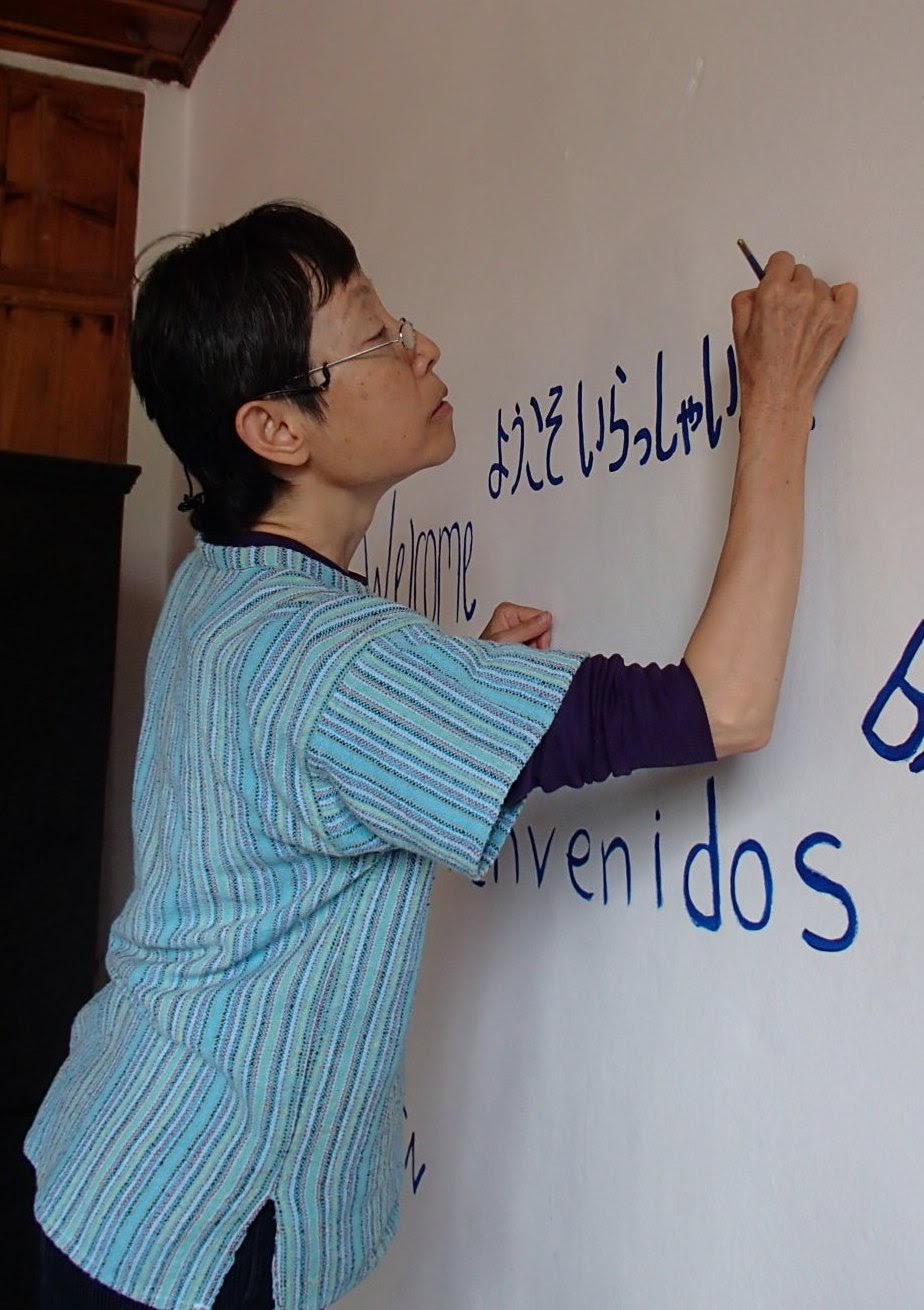 ようこそいらっしゃい
Welcome
nvenidos